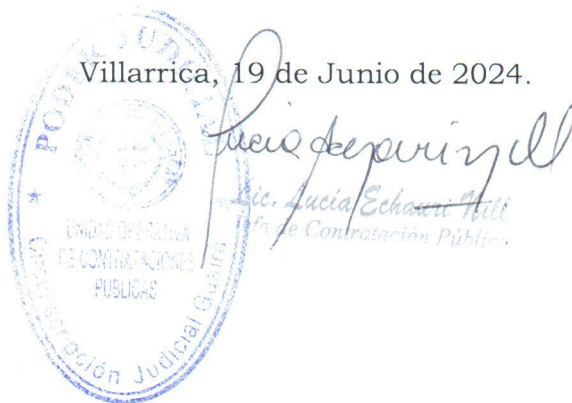 Villarrica, 19 de Junio de 2024.
PODER JUDICIAL
Lic. Lucía Echauri Nill
Jefa de Contratación Pública
UNIDAD OPERATIVA
DE CONTRATACIONES
PÚBLICAS
Circunscripción Judicial Guairá